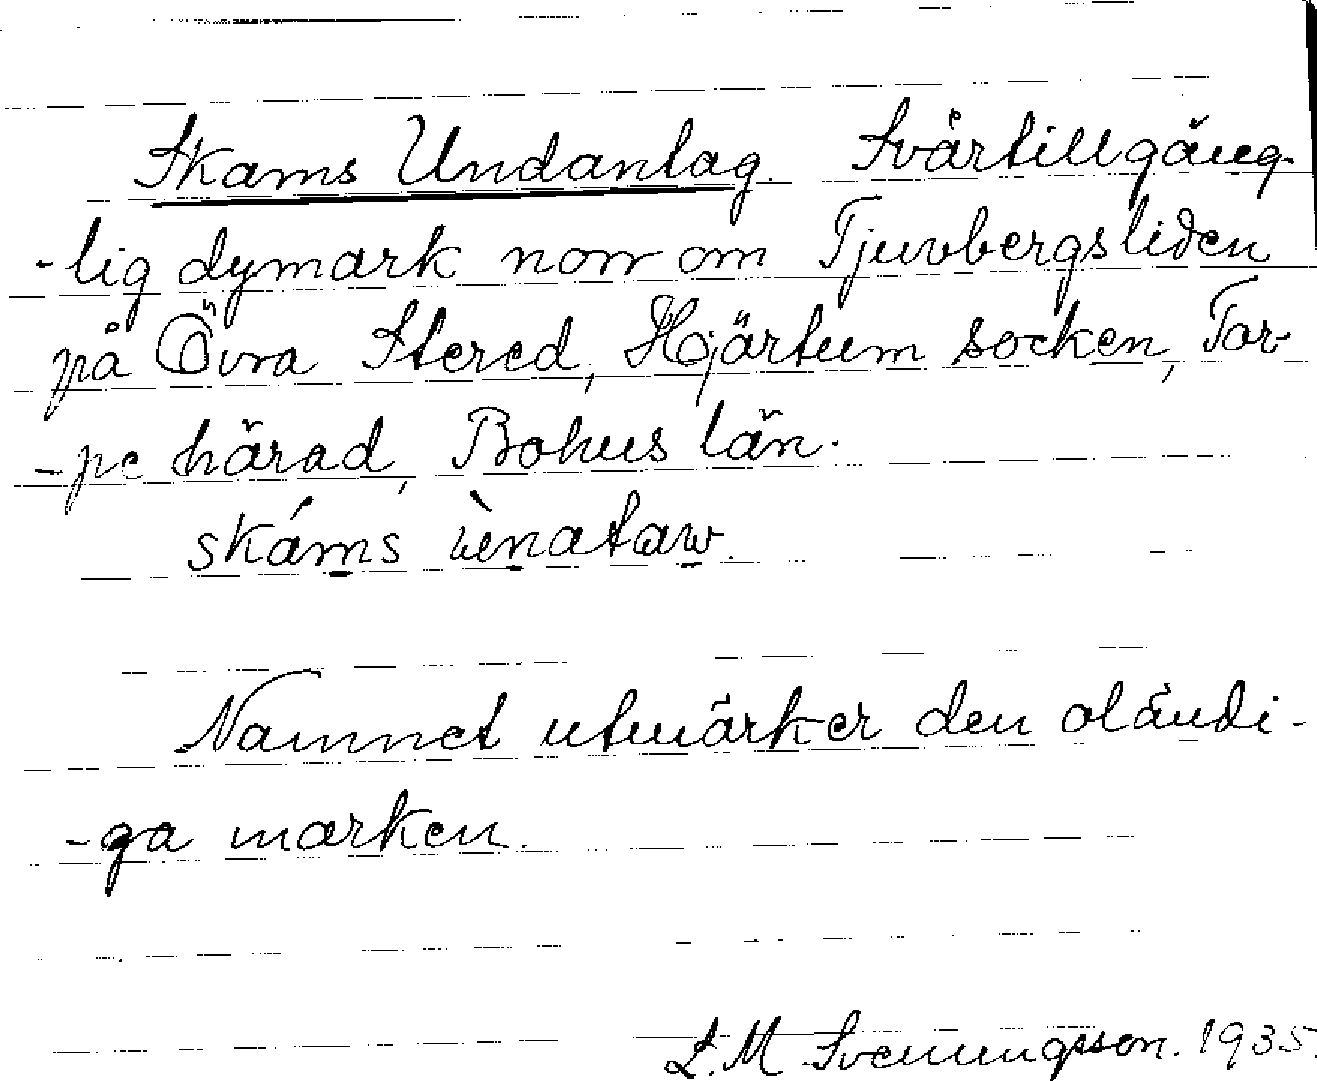 Skams Undantag. Svårtillgäng-
-lig dymark norr om Tjuvbergsliden
på Övra Stered, Hjärtum socken, Tor-
-pe härad, Bohus län.
skáms ùnataw.
Namnet utmärker den oländi-
-ga marken.
L.M. Svenungsson. 1935.